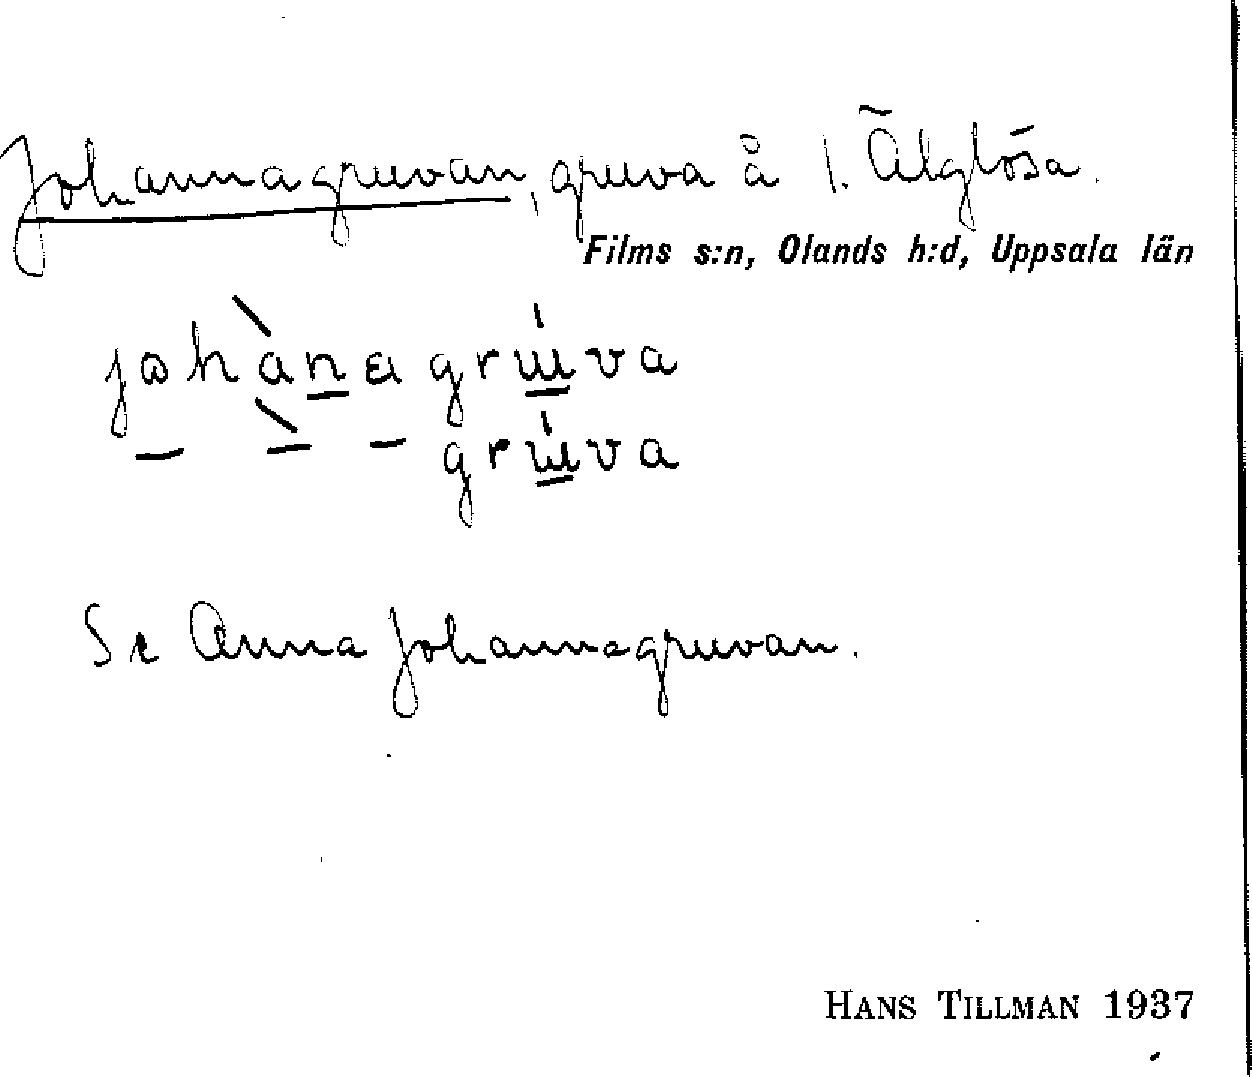 Johannagruvan, gruva å 1. Älglösa.
Films s:n, Olands h:d, Uppsala län
johànagrɯ́va
— –̀ – grɯ́va
Se Anna Johannagruvan.
HANS TILLMAN 1937